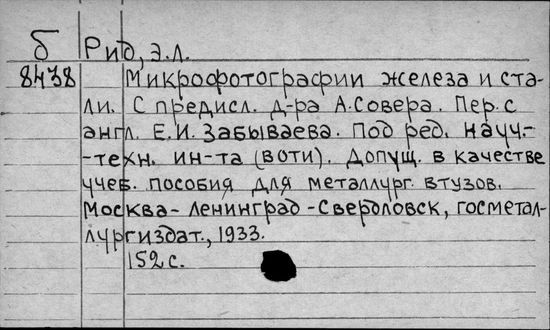 б Рид, э.л.
8438 Микрофотографии железа и ста-
ли. С предисл. д-ра А.Совера. Пер. с
англ. Е.И. Забываева. Под ред. науч.-
-техн. ин-та (ВОТИ). Допущ. в качестве
учеб. пособия для металлург. втузов.
Москва-Ленинград-Свердловск, Госметал-
лургиздат., 1933.
152 с.